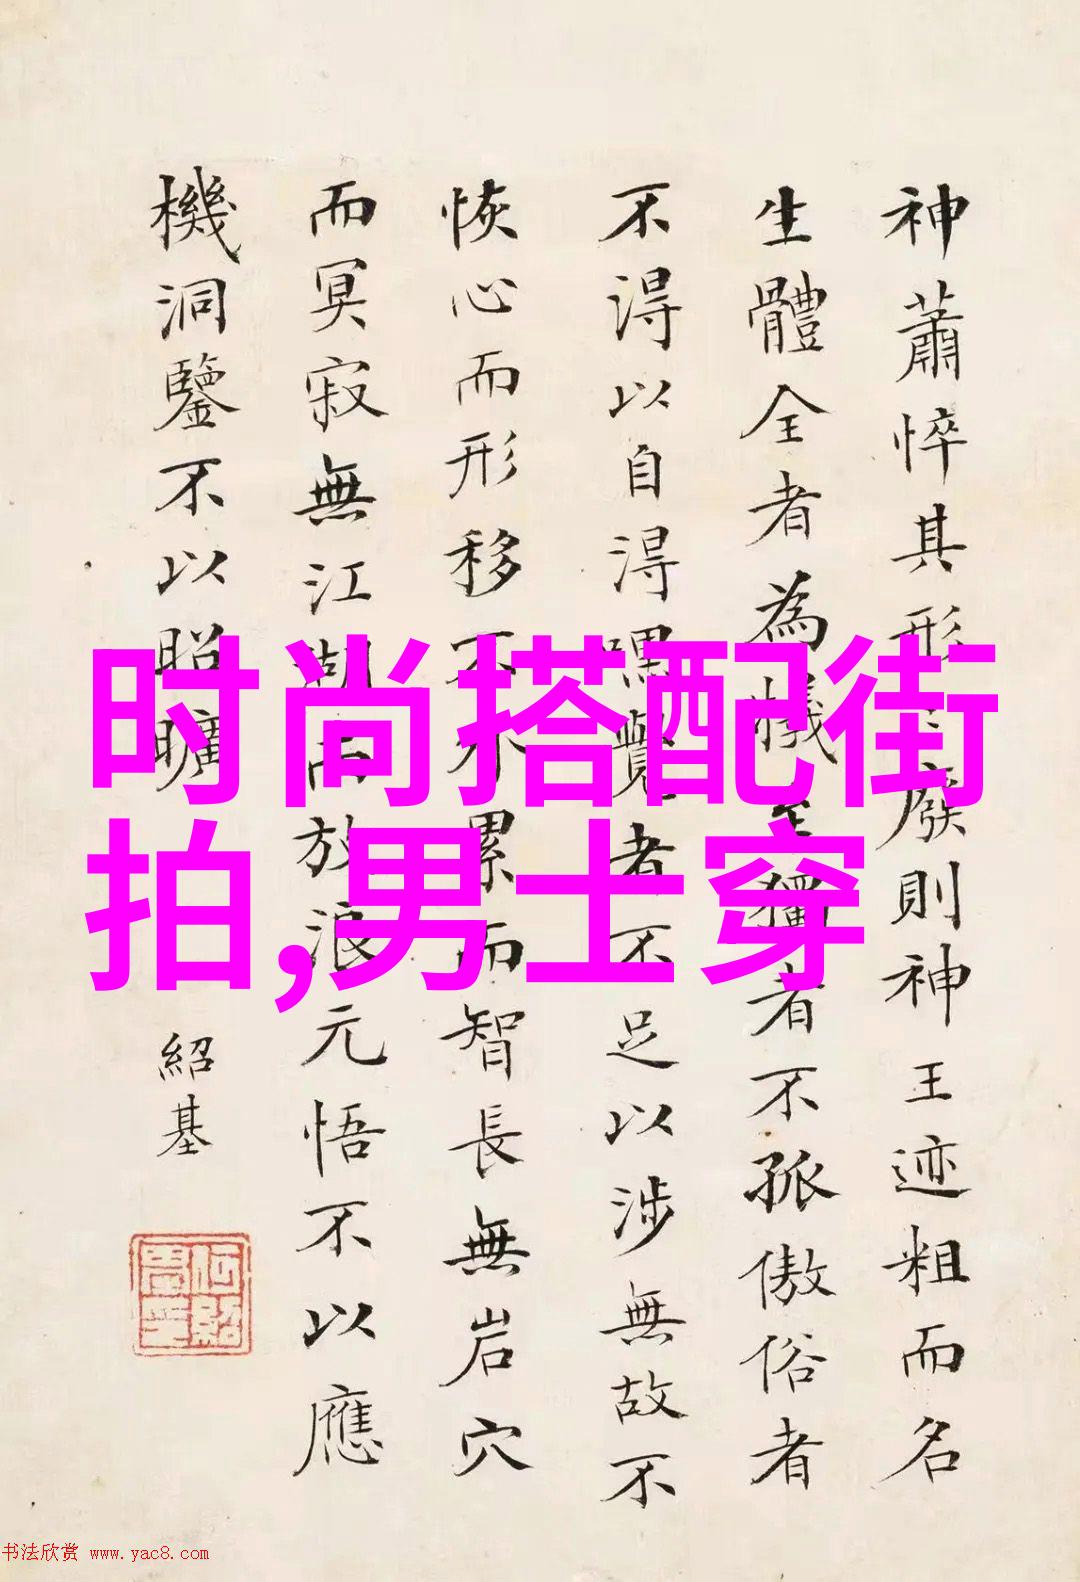 神蕭悴其形廢則神王迹粗而名
生體全者為犧獨者不孤傲俗者
不得以自得嘿覺者不足以涉無故不
恢心而形移不累而智長無岩穴
而冥寂無江湖而放浪元悟不以應
機洞鑒不以昭曠
紹基
时尚搭配街
拍,男士穿
书法欣赏 www.yac8.com